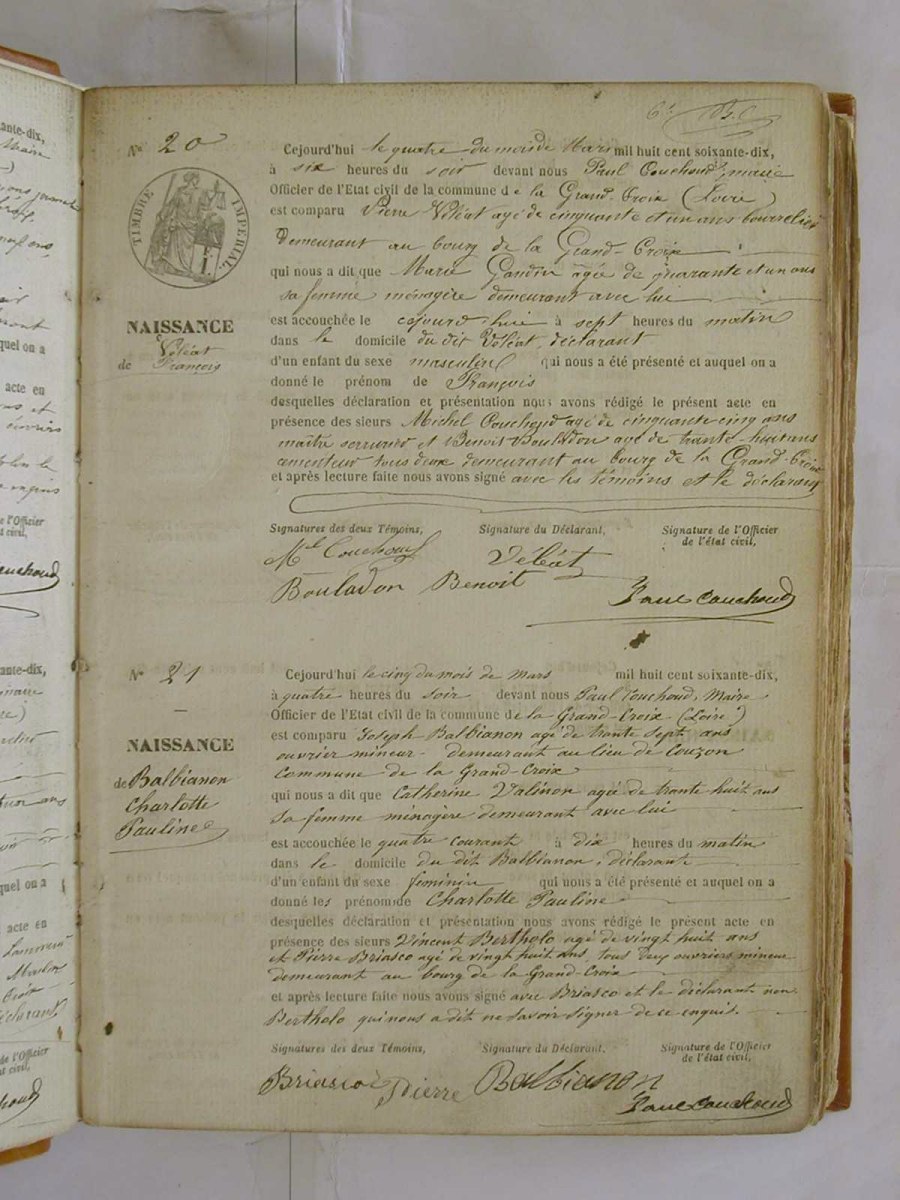 6e
No 20
TIMBRE IMPERIAL
NAISSANCE
de Voléat
François
Cejourd'hui le quatre du mois de Mars mil huit cent soixante-dix,
à six heures du soir devant nous Paul Couchoud, maire
Officier de l'Etat civil de la commune de la Grand-Croix (Loire)
est comparu Pierre Voléat agé de cinquante et un ans bourrelier
demeurant au bourg de la Grand-Croix
qui nous a dit que Marie Gandin agée de quarante et un ans
sa femme ménagère demeurant avec lui
est accouchée le cejourd'hui à sept heures du matin
dans le domicile du dit Voléat, déclarant
d'un enfant du sexe masculin qui nous a été présenté et auquel on a
donné le prénom de François
desquelles déclaration et présentation nous avons rédigé le présent acte en
présence des sieurs Michel Couchoud agé de cinquante cinq ans
maître serrurier et Benoit Bouladon agé de trante-huit ans
cementeur tous deux demeurant au bourg de la Grand-Croix
et après lecture faite nous avons signé avec les témoins et le déclarant
Signatures des deux Témoins, Signature du Déclarant, Signature de l'Officier
de l'état civil,
Mel Couchoud Voléat
Bouladon Benoit Paul Couchoud
No 21
NAISSANCE
de Balbianon
Charlotte
Pauline
Cejourd'hui le cinq du mois de Mars mil huit cent soixante-dix,
à quatre heures du soir devant nous Paul Couchoud, Maire
Officier de l'Etat civil de la commune de la Grand-Croix (Loire)
est comparu Joseph Balbianon agé de trante sept ans
ouvrier mineur demeurant au lieu de Couzon
Commune de la Grand-Croix
qui nous a dit que Catherine Valinon agée de trante huit ans
sa femme ménagère demeurant avec lui
est accouchée le quatre courant à dix heures du matin
dans le domicile du dit Balbianon, déclarant
d'un enfant du sexe feminin qui nous a été présenté et auquel on a
donné les prénoms de Charlotte Pauline
desquelles déclaration et présentation nous avons rédigé le présent acte en
présence des sieurs Vincent Bertholo agé de vingt huit ans
et Pierre Briasco agé de vingt huit ans, tous deux ouvriers mineur
demeurant au bourg de la Grand-Croix
et après lecture faite nous avons signé avec Briasco et le déclarant non
Bertholo qui nous a dit ne savoir signer de ce enquis.
Signatures des deux Témoins, Signature du Déclarant, Signature de l'Officier
de l'état civil,
Briasco Pierre Balbianon
Paul Couchoud